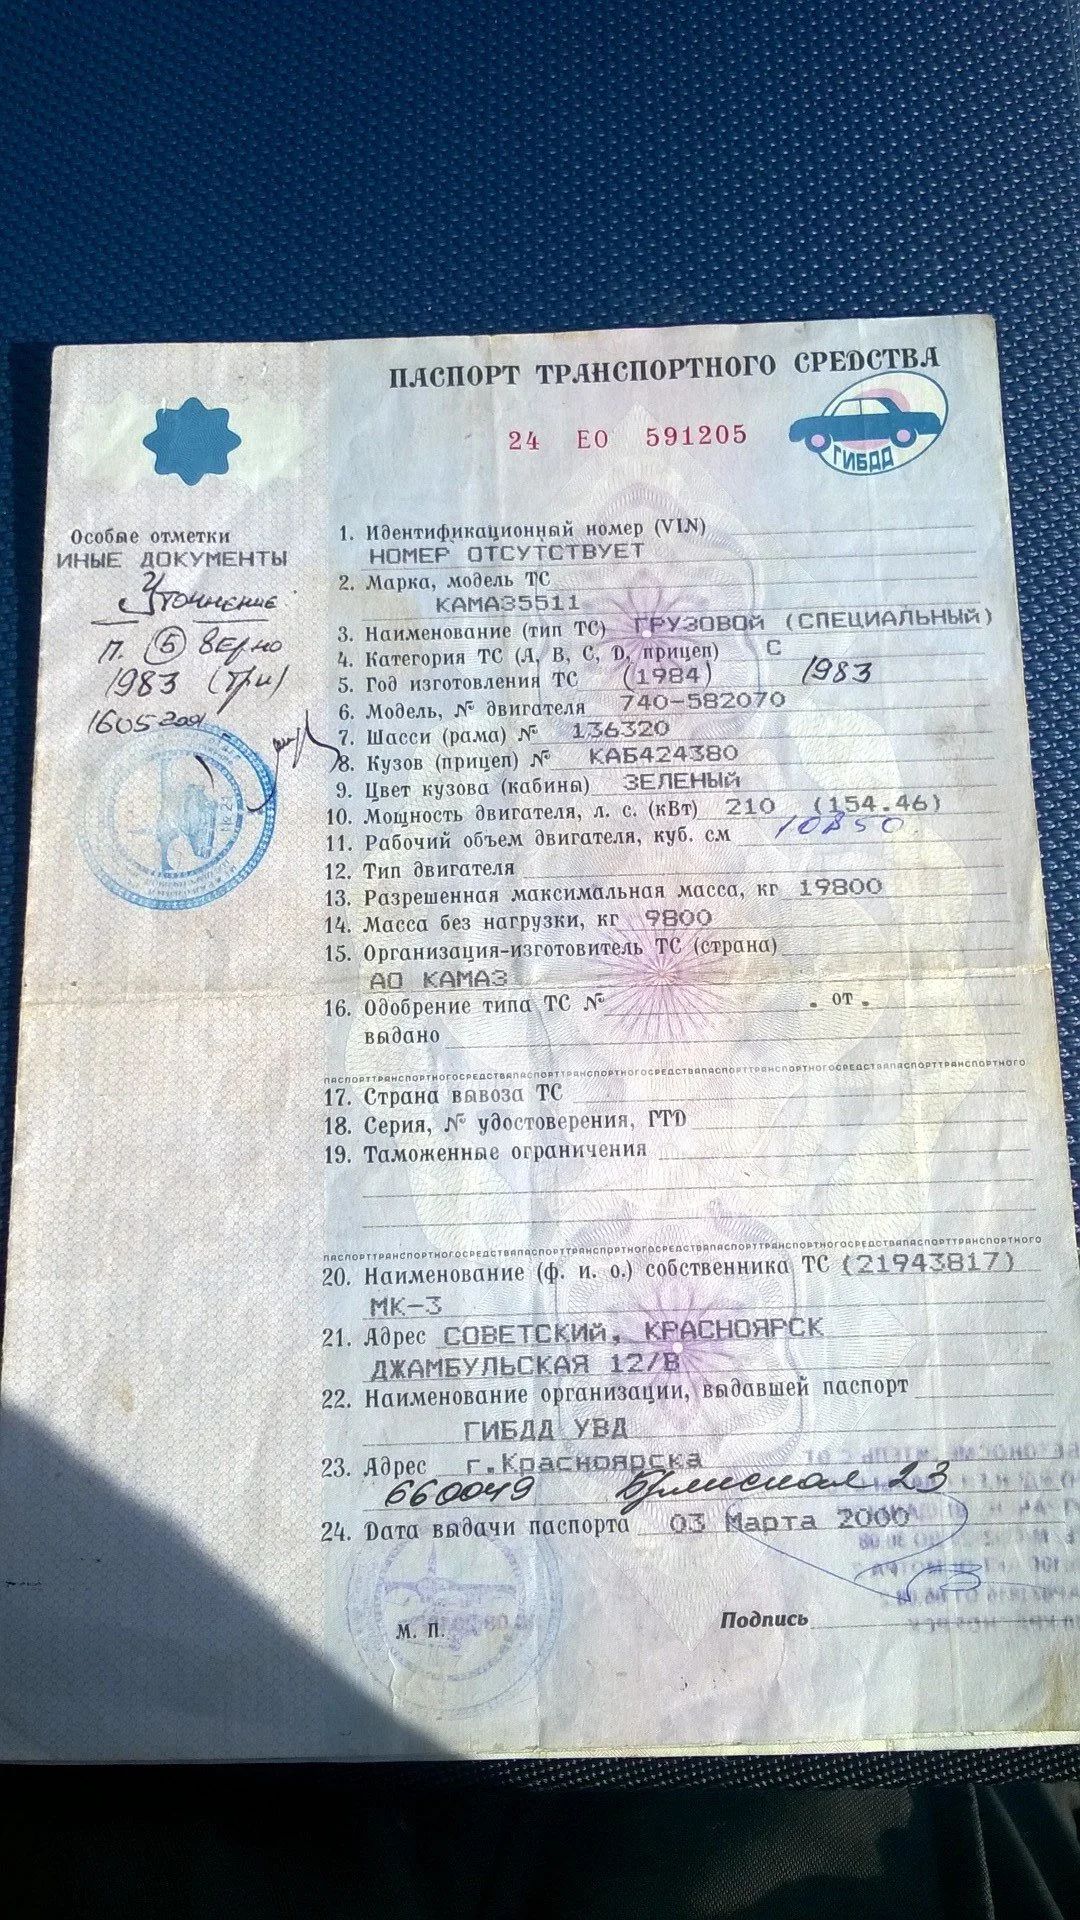 ПАСПОРТ ТРАНСПОРТНОГО СРЕДСТВА
24 ЕО 591205
ГИБДД
Особые отметки
ИНЫЕ ДОКУМЕНТЫ
Уточнение
п. 5 верно
1983 (три)
1. Идентификационный номер (VIN)
НОМЕР ОТСУТСТВУЕТ
2. Марка, модель ТС
КАМАЗ5511
3. Наименование (тип ТС) ГРУЗОВОЙ (СПЕЦИАЛЬНЫЙ)
4. Категория ТС (А, В, С, D, прицеп) С
5. Год изготовления ТС (1984) 1983
6. Модель, № двигателя 740-582070
7. Шасси (рама) № 136320
8. Кузов (прицеп) № КАБ424380
9. Цвет кузова (кабины) ЗЕЛЕНЫЙ
10. Мощность двигателя, л. с. (кВт) 210 (154.46)
11. Рабочий объем двигателя, куб. см 10850
12. Тип двигателя
13. Разрешенная максимальная масса, кг 19800
14. Масса без нагрузки, кг 9800
15. Организация-изготовитель ТС (страна)
АО КАМАЗ
16. Одобрение типа ТС № . от .
выдано
ПАСПОРТТРАНСПОРТНОГОСРЕДСТВАПАСПОРТТРАНСПОРТНОГОСРЕДСТВАПАСПОРТТРАНСПОРТНОГОСРЕДСТВАПАСПОРТТРАНСПОРТНОГО
17. Страна вывоза ТС
18. Серия, № удостоверения, ГТД
19. Таможенные ограничения
ПАСПОРТТРАНСПОРТНОГОСРЕДСТВАПАСПОРТТРАНСПОРТНОГОСРЕДСТВАПАСПОРТТРАНСПОРТНОГОСРЕДСТВАПАСПОРТТРАНСПОРТНОГО
20. Наименование (ф. и. о.) собственника ТС (21943817)
МК-3
21. Адрес СОВЕТСКИЙ, КРАСНОЯРСК
ДЖАМБУЛЬСКАЯ 12/В
22. Наименование организации, выдавшей паспорт
ГИБДД УВД
23. Адрес г.Красноярска
660049 23
24. Дата выдачи паспорта 03 Марта 2000
М. П.
Подпись